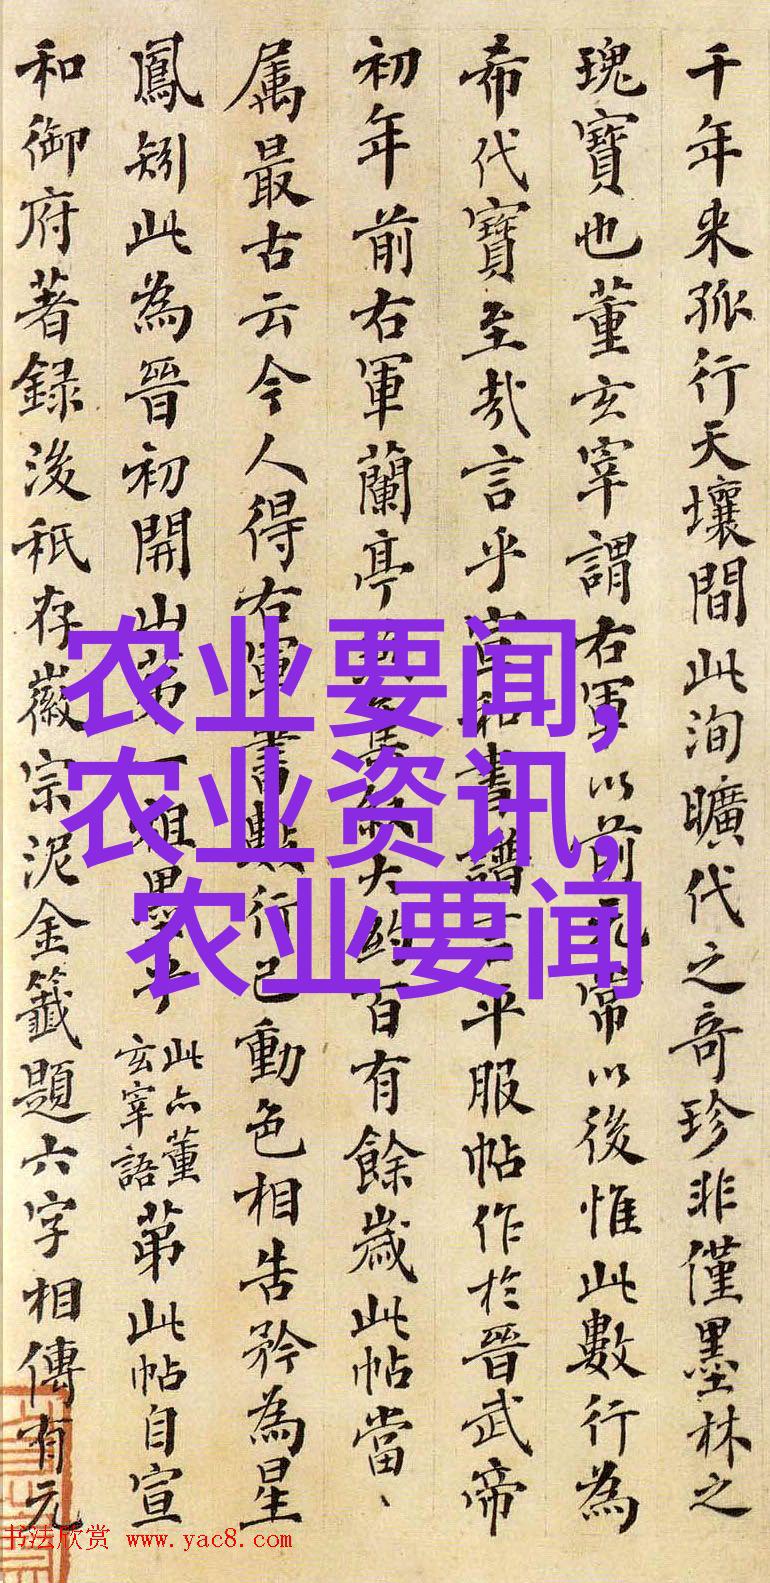 千年来孤行天壤間此洵曠代之奇珍非僅墨林之
瑰寶也董玄宰謂右軍以前元常以後惟此數行為
希代寶至哉言乎宣和書譜平服帖作於晉武帝
初年前右軍蘭亭大約百有餘歲此帖當、
属最古云今人得右軍書數行已動色相告矜為星
鳳矧此為晉初開山第一祖墨乎
此亦董
玄宰語
苐此帖自宣
和御府著録後秖存徽宗泥金籤題六字相傳有元
农业要闻,
农业资讯,
农业要闻
书法欣赏 www.yac8.com